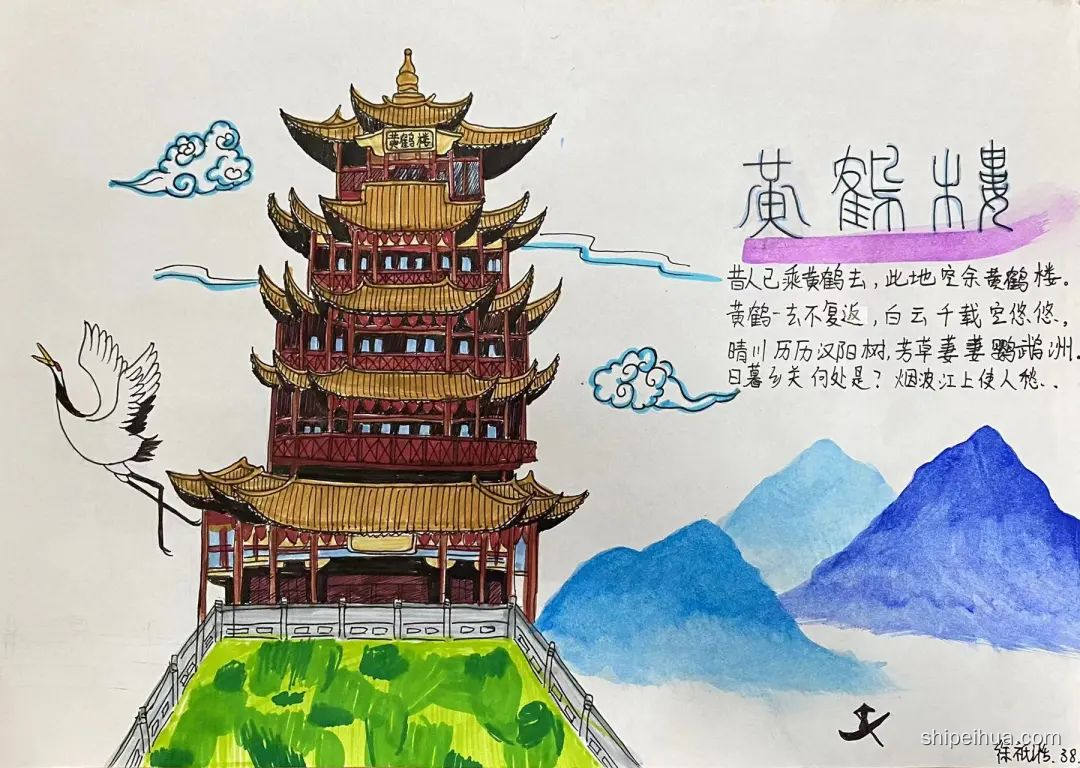 黄鹤楼
黄鹤楼
昔人已乘黄鹤去，此地空余黄鹤楼。
黄鹤一去不复返，白云千载空悠悠。
晴川历历汉阳树，芳草萋萋鹦鹉洲。
日暮乡关何处是？烟波江上使人愁..
shipeihua.com
38